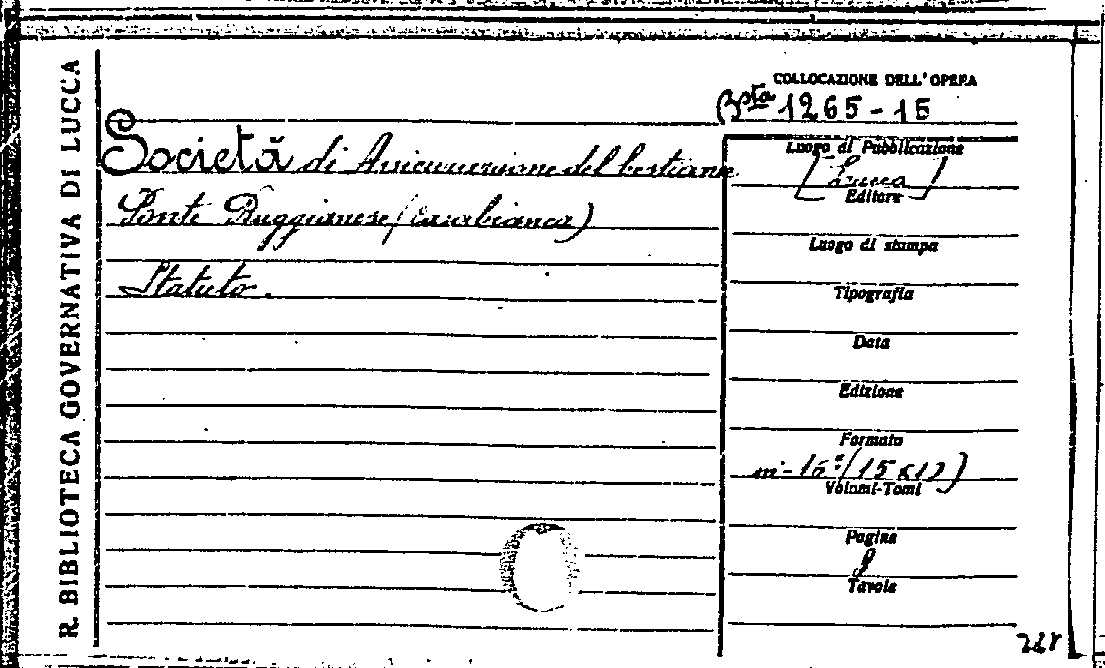 R. BIBLIOTECA GOVERNATIVA DI LUCCA
COLLOCAZIONE DELL'OPERA
Bsta 1265-15
Società di Assicurazione del bestiame
Ponte Buggianese (Casabianca)
Statuto.
Luogo di Pubblicazione
[Lucca]
Editore
Luogo di stampa
Tipografia
Data
Edizione
Formato
in-16° (15x12)
Volumi-Tomi
Pagine
Tavole